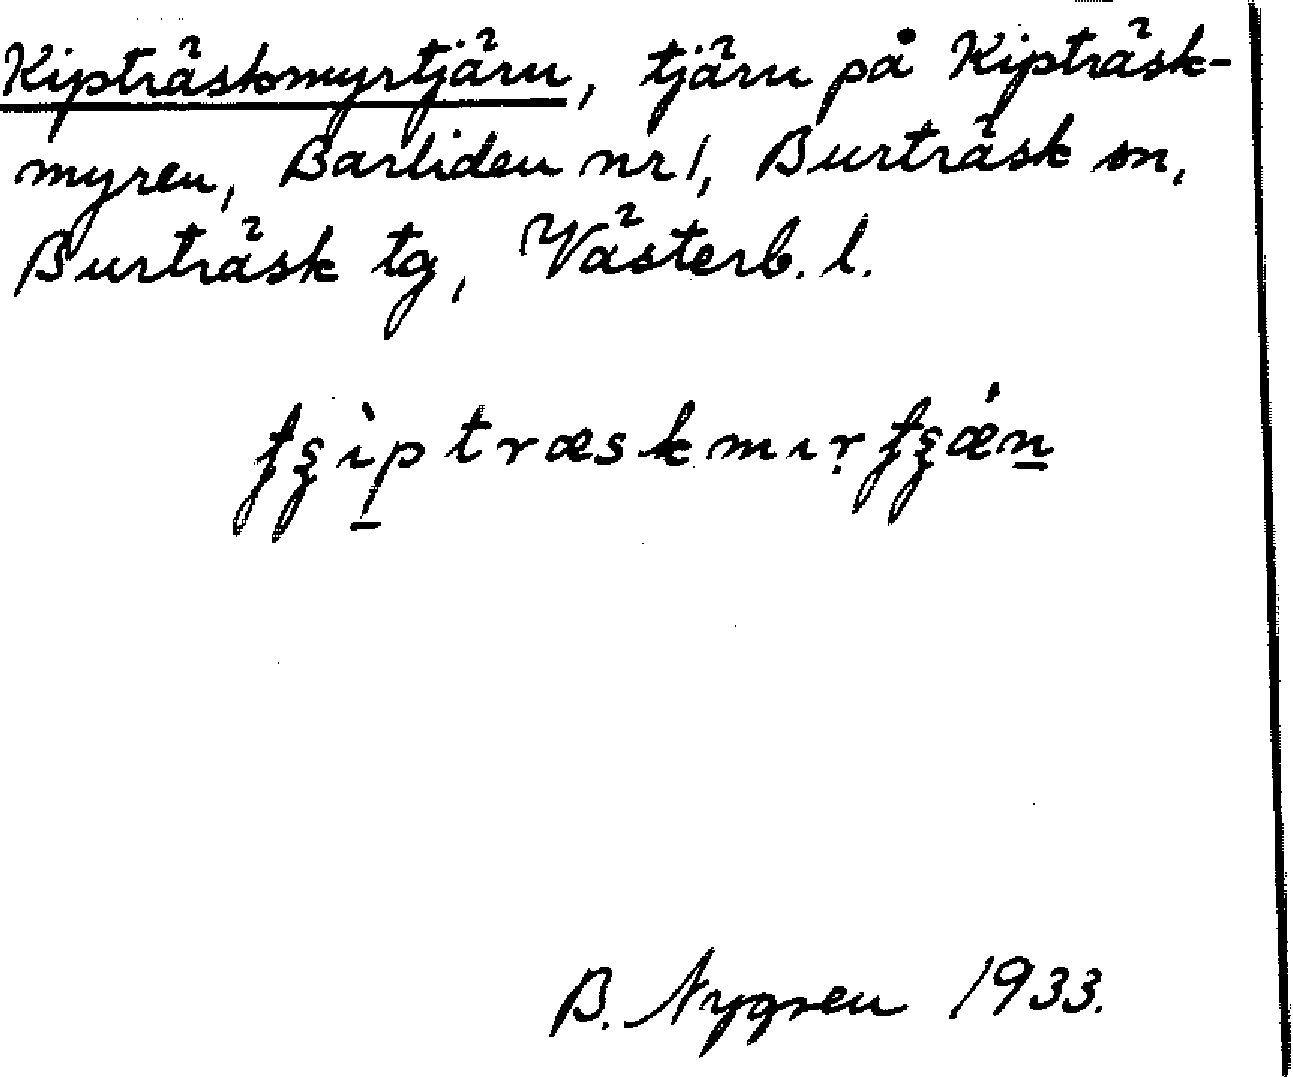 Kipträskmyrtjärn, tjärn på Kipträsk-
myren, Barliden nr 1, Burträsk sn,
Burträsk tg, Västerb. l.
B. Nygren 1933.